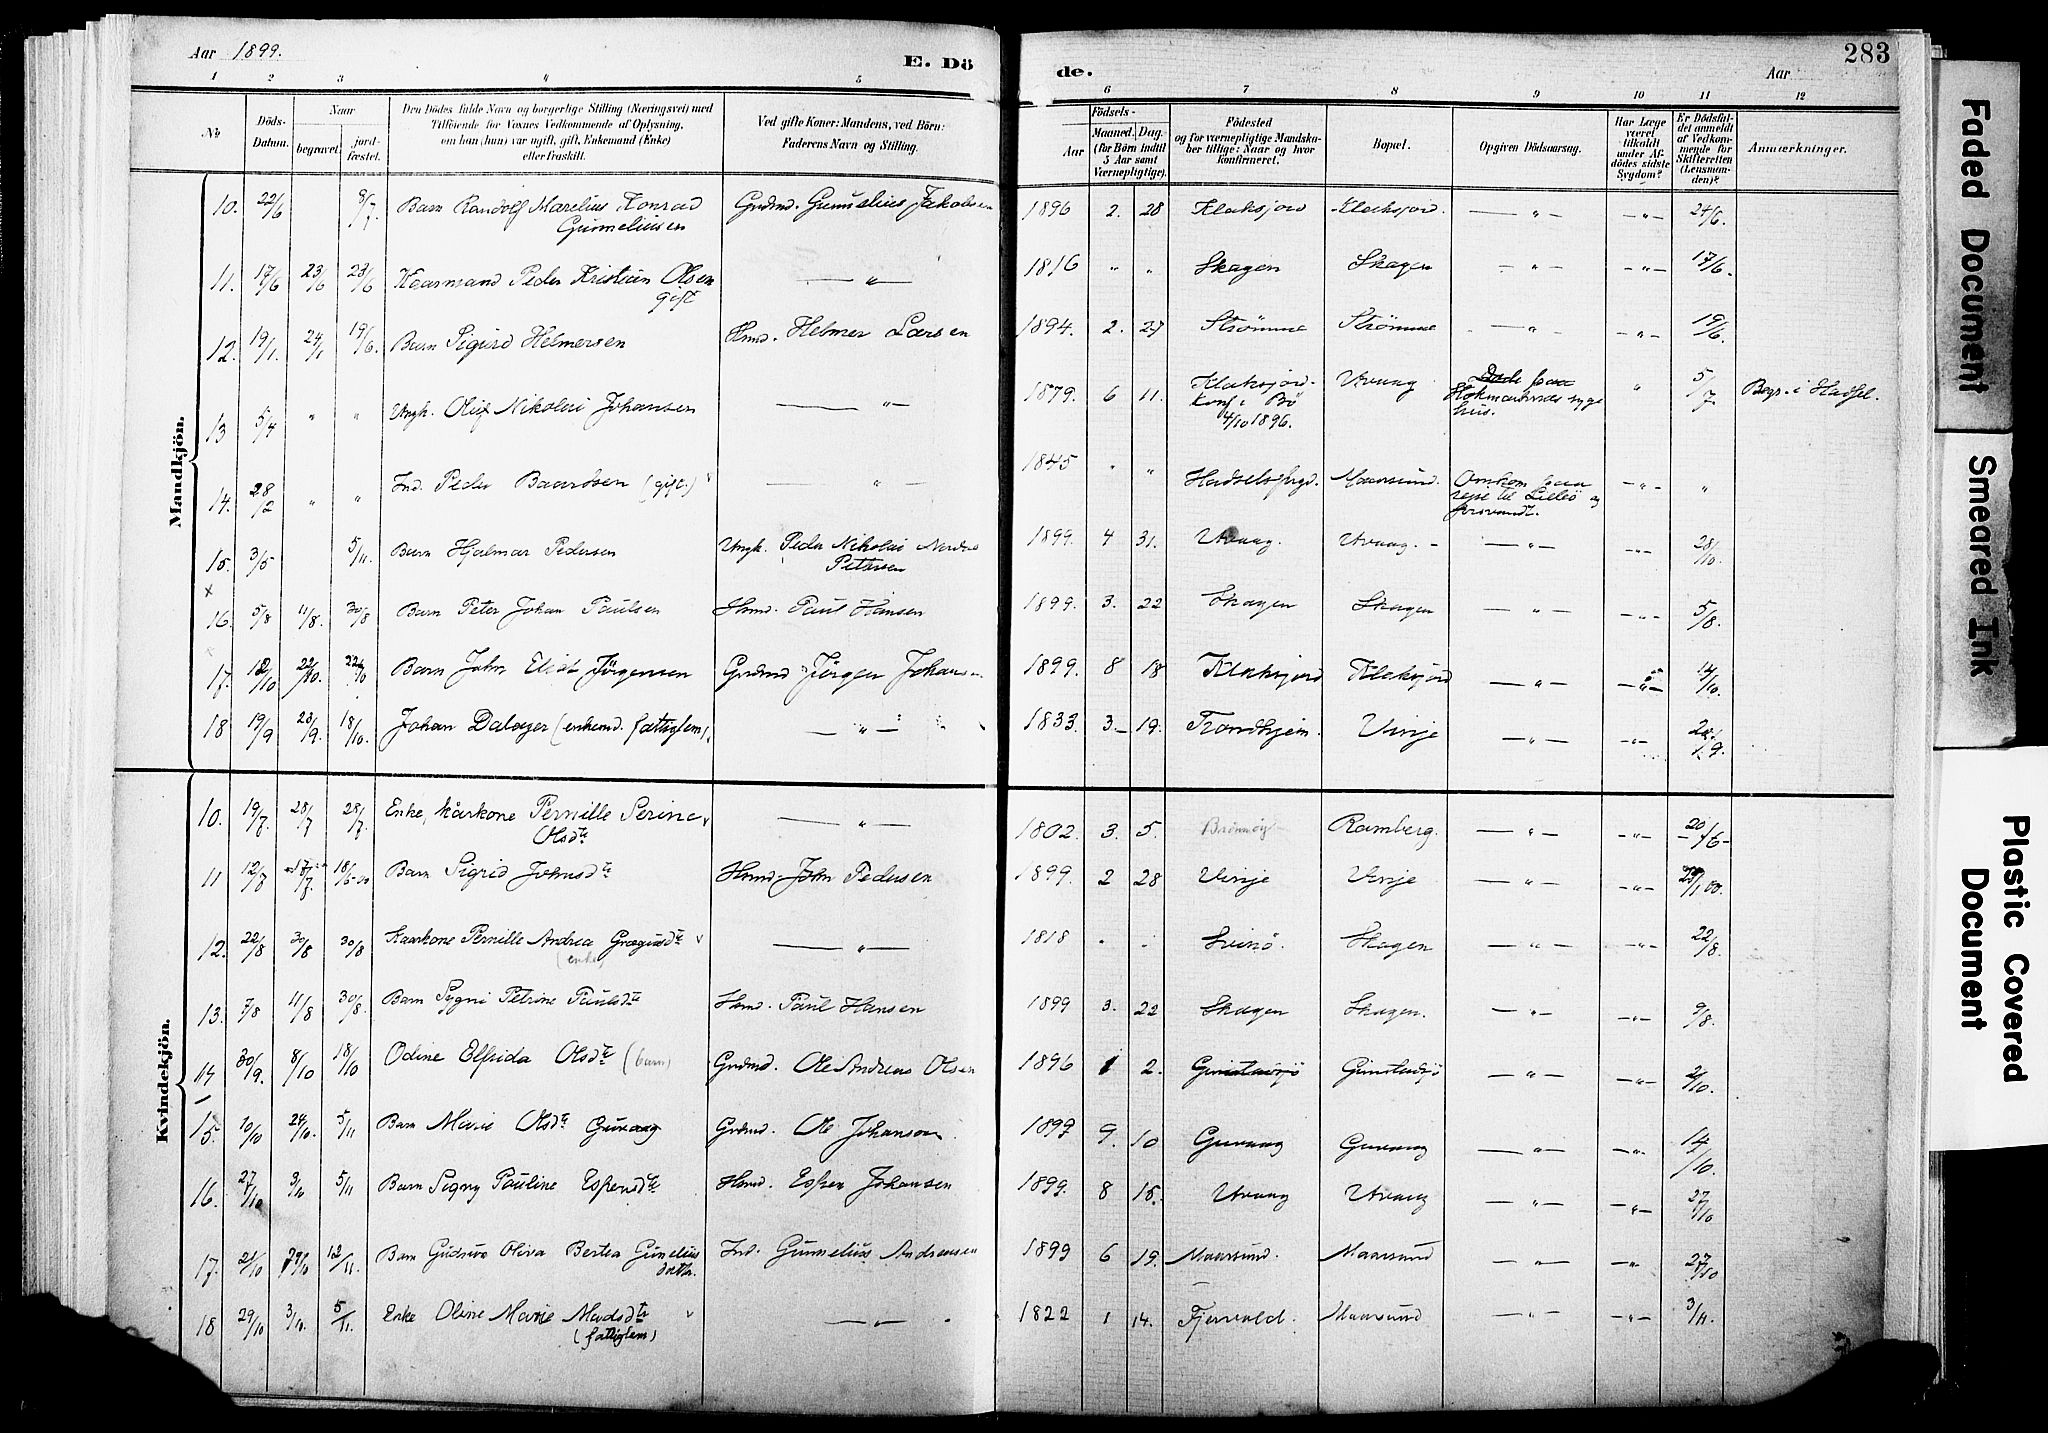 Aar 1899.
E. Dö
de.
Aar
283
1 2 3 4 5 6 7 8 9 10 11 12
No
Döds-
Datum.
Naar
begravet.
jord-
fæstet.
Den Dödes fulde Navn og borgerlige Stilling (Næringsvei) med
Tilföiende for Voxnes Vedkommende af Oplysning,
om han (hun) var ugift, gift, Enkemand (Enke)
eller fraskilt.
Ved gifte Koner: Mandens, ved Börn:
Faderens Navn og Stilling.
Födsels-
Aar
Maaned. Dag.
(for Börn indtil
5 Aar samt
Værnepligtige).
Födested
og for værnepligtige Mandska-
ber tillige: Naar og hvor
konfirmeret.
Bopæl.
Opgiven Dödsaarsag.
Har Læge
været
tilkaldt
under Af-
dödes sidste
Sygdom?
Er Dödsfal-
det anmeldt
af Vedkom-
mende for
Skifteretten
(Lensman-
den)?
Anmærkninger.
Mandkjön.
10. 22/6 8/7 Barn Randolf Marelius Konrad Grdmd. Gunnelius Jakobsen 1896 2. 28 Klaksjord Klaksjord. — " — — " — 24/6.
Gunneliusen
11. 17/6 23/6 23/6 Kaarmand Peder Kristian Olsen — " — 1816 " " Skagen Skagen — " — — " — 17/6.
gift
12. 19/1. 24/1 19/6. Barn Sigurd Helmersen Hmd. Helmer Larsen 1894. 2. 27 Strömme Strömme — " — — " — 19/6.
13 5/4 " " Ungk. Oluf Nikolai Johansen — " — 1879. 6 11. Klaksjord. Utvaag. Döde paa " 5/7. Begr. i Hadsel.
Konf. i Bö Stokmarknes syge
4/10 1896. hus.
14. 28/2 " " Ind. Peder Baardsen (gift.) — " — 1845 " " Hadselsfjrd. Maarsund. Omkom paa — " — "
rejse til Lilleö og
forsvandt.
15. 3/5 5/11. Barn Hjalmar Pedersen Ungk. Peder Nikolai 1899. 4 31. Utvaag. Utvaag. — " — — " — 28/10.
Petersen
16. 5/8 11/8. 30/8 Barn Peter Johan Paulsen Hmd. Paul Hansen 1899. 3. 22 Skagen Skagen — " — — " — 5/8.
17. 12/10 22/10. 22/10 Barn John Jörgensen Grdmd. Jörgen Johansen 1899 8 18 Klaksjord Klaksjord — " — — " — 14/10.
18 19/9 23/9. 18/10. Johan Daloger (enkemd. fattiglem). — " — 1833. 3 19. Trondhjem. Vinje — " — — " —
Kvindekjön.
10. 19/7. 28/7 28/7. Enke, kårkone Pernille Serine — " — 1802. 3. 5. Brönnöy Ramberg. — " — — " — 20/6
Olsdtr
11 12/7 17/7. Barn Sigrid Johnsdtr Hmd. John Pedersen 1899. 2 28 Vinje Vinje — " — — " — 23/1 00.
12. 22/8 30/8 30/8 Kaarkone Pernille Andrea Gregusdtr — " — 1818 " " Svinö. Skagen — " — — " — 22/8.
(enke)
13. 7/8 11/8 30/8. Barn Sygni Petrine Paulsdtr Hmd. Paul Hansen 1899 3. 22 Skagen Skagen. — " — — " — 9/8.
14 30/9. 8/10 18/10 Odine Elfrida Olsdtr (barn) Grdmd. Ole Andreas Olsen 1896 1 2. Gimstadsjö Gimstadsjö — " — — " — 2/10.
15. 10/10 24/10. 5/11 Barn Marie Olsdtr Guvaag Grdmd. Ole Johanson. 1897 9. 10 Guvaag Guvaag — " — — " — 14/10.
16. 27/10 3/10 5/11 Barn Signy Pauline Espensdtr Hmd. Espen Johansen 1899. 8 15. Utvaag Utvaag — " — — " — 27/10
17. 21/10 29/10 12/11. Barn Gudrun Oliva Bertea Gunelius Ind. Gunnelius Andreasen 1899 6 19. Maarsund. Maarsund — " — — " — 27/10
datter.
18 29/10 3/10. 5/11. Enke Oline Marie Madsdtr — " — 1822 1 14. Fjærvold. Maarsund — " — — " — 3/11.
(fattiglem)
Faded Document
Smeared Ink
Plastic Covered
Document